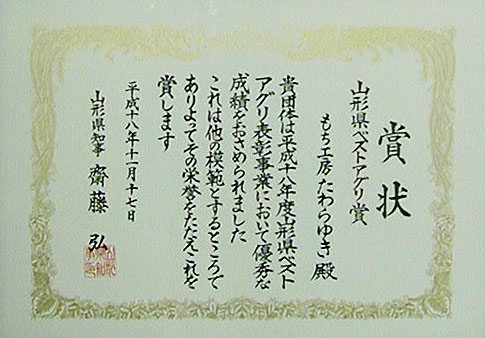 賞状
山形県ベストアグリ賞
もち工房たわらゆき殿
貴団体は平成十八年度山形県ベスト
アグリ表彰事業において優秀な
成績をおさめられました
これは他の模範とするところで
ありよってその栄誉をたたえこれを
賞します
平成十八年十一月十七日
山形県知事 齋藤 弘